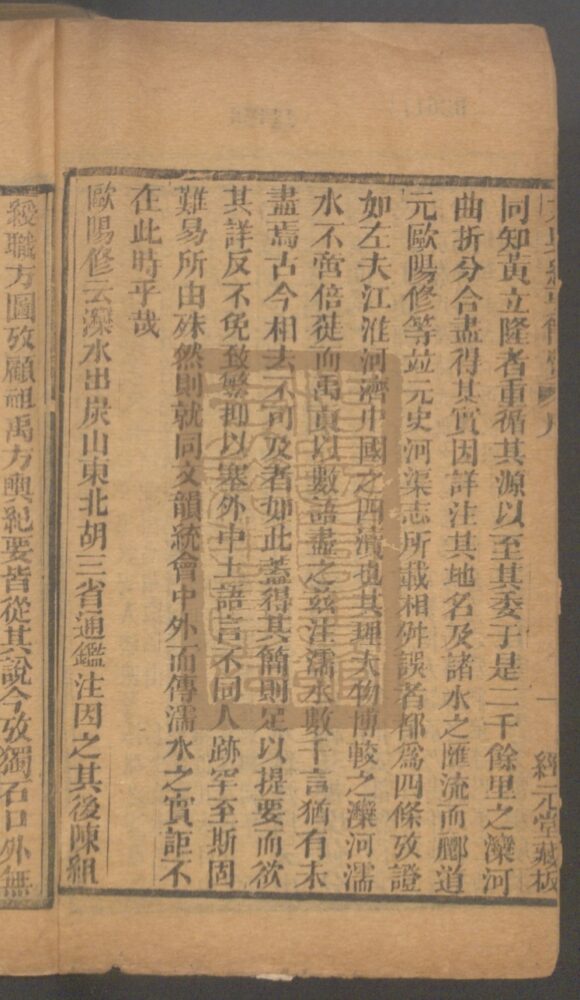 經元堂藏板
同知黃立隆者重循其源以至其委于是二千餘里之灤河
曲折分合盡得其實因詳注其地名及諸水之匯流而酈道
元歐陽修等並元史河渠志所載相舛誤者都爲四條攷證
如左夫江淮河濟中國之四瀆也其理大物博較之灤河濡
水不啻倍蓰而禹貢以數語盡之兹注濡水數千言猶有未
盡焉古今相去不可及者如此葢得其簡則足以提要而欲
其詳反不免致繁抑以塞外中土語言不同人跡罕至斯固
難易所由殊然則就同文韻統會中外而傳濡水之實詎不
在此時乎哉
歐陽修云灤水出炭山東北胡三省通鑑注因之其後陳組
綬職方圖攷顧祖禹方輿紀要皆從其說今攷獨石口外無